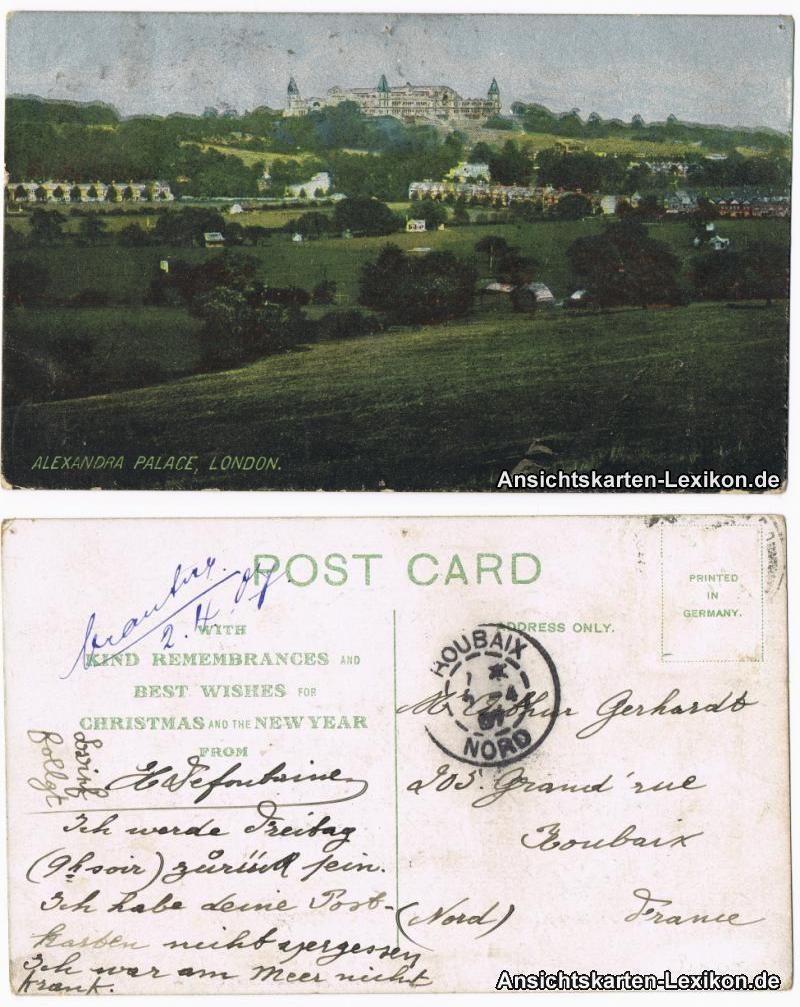 ALEXANDRA PALACE, LONDON.
Ansichtskarten-Lexikon.de
POST CARD
PRINTED
IN
GERMANY.
2.4.07.
WITH
KIND REMEMBRANCES AND
BEST WISHES FOR
CHRISTMAS AND THE NEW YEAR
FROM
H Defontaine
Brief
folgt
Ich werde Freitag
(9h soir) zurück sein.
Ich habe deine Post-
karten nicht vergessen
Ich war am Meer nicht
krank.
ADDRESS ONLY.
ROUBAIX
NORD
Mr Arthur Gerhardt
205. Grand'rue
Roubaix
(Nord) France
Ansichtskarten-Lexikon.de